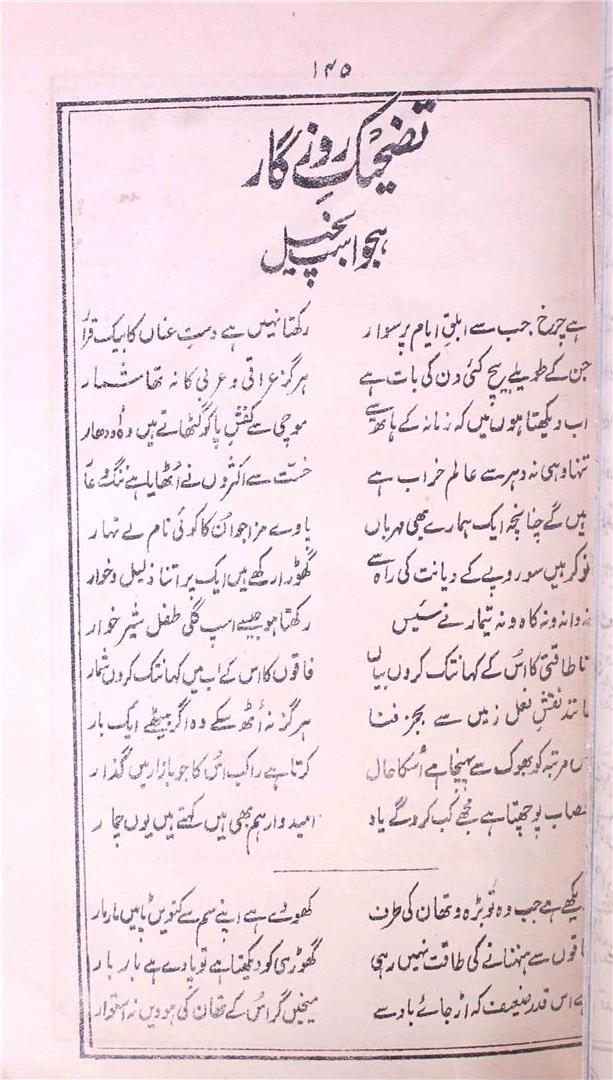 ۱۴۵
تضحیکِ روزگار
ہجو اسپ بخیل
ہے چرخ جب سے ابلقِ ایام پر سوار رکھتا نہیں ہے دستِ عناں کا بیک قرا
جن کے طویلے بیچ کئی دن کی بات ہے ہرگز عراقی و عربی کا نہ تھا شمار
اب دیکھتا ہوں میں کہ زمانہ کے ہاتھ سے موچی سے کفشِ پا کو گٹھاتے ہیں وہ اُودھار
تنہا وہی نہ دہر سے عالم خراب ہے خست سے اکثروں نے اُٹھایا ہے ننگ و عا
ہیں گے چنانچہ ایک ہمارے بھی مہرباں پاوے سزا جو انُ کا کوئی نام لے نہار
نوکر ہیں سو روپے کے دیانت کی راہ سے گھوڑا رکھے ہیں ایک پر اتنا ذلیل و خوار
نہ دانہ و نہ کاہ و نہ تیمار نے سئیں رکھتا ہو جیسے اسپ گلی طفل شیر خوار
نا طاقتی کا اسُ کے کہانتک کروں بیاں فاقوں کا اس کے اب میں کہانتک کروں شمار
مانند نقشِ نعل زمیں سے بجز فنا ہرگز نہ اُٹھ سکے وہ اگر بیٹھے ایک بار
اس مرتبہ کو بھوک سے پہنچا ہے اُسکا حال کرتا ہے راکب اسُ کا جو بازار میں گذار
قصاب پوچھتا ہے مجھے کب کرو گے یاد امیدوار ہم بھی ہیں کہتے ہیں یوں چمار
دیکھے ہے جب وہ توبڑہ و تھان کی طرف کھودے ہے اپنے سم سے کنویں ٹاپیں مار مار
فاقوں سے ہنہنانے کی طاقت نہیں رہی گھوڑی کو دیکھتا ہے تو پادے ہے بار بار
ہے اس قدر ضعیف کہ اڑ جائے باد سے میخیں گر اسُ کے تھان کی ہوویں نہ استوار